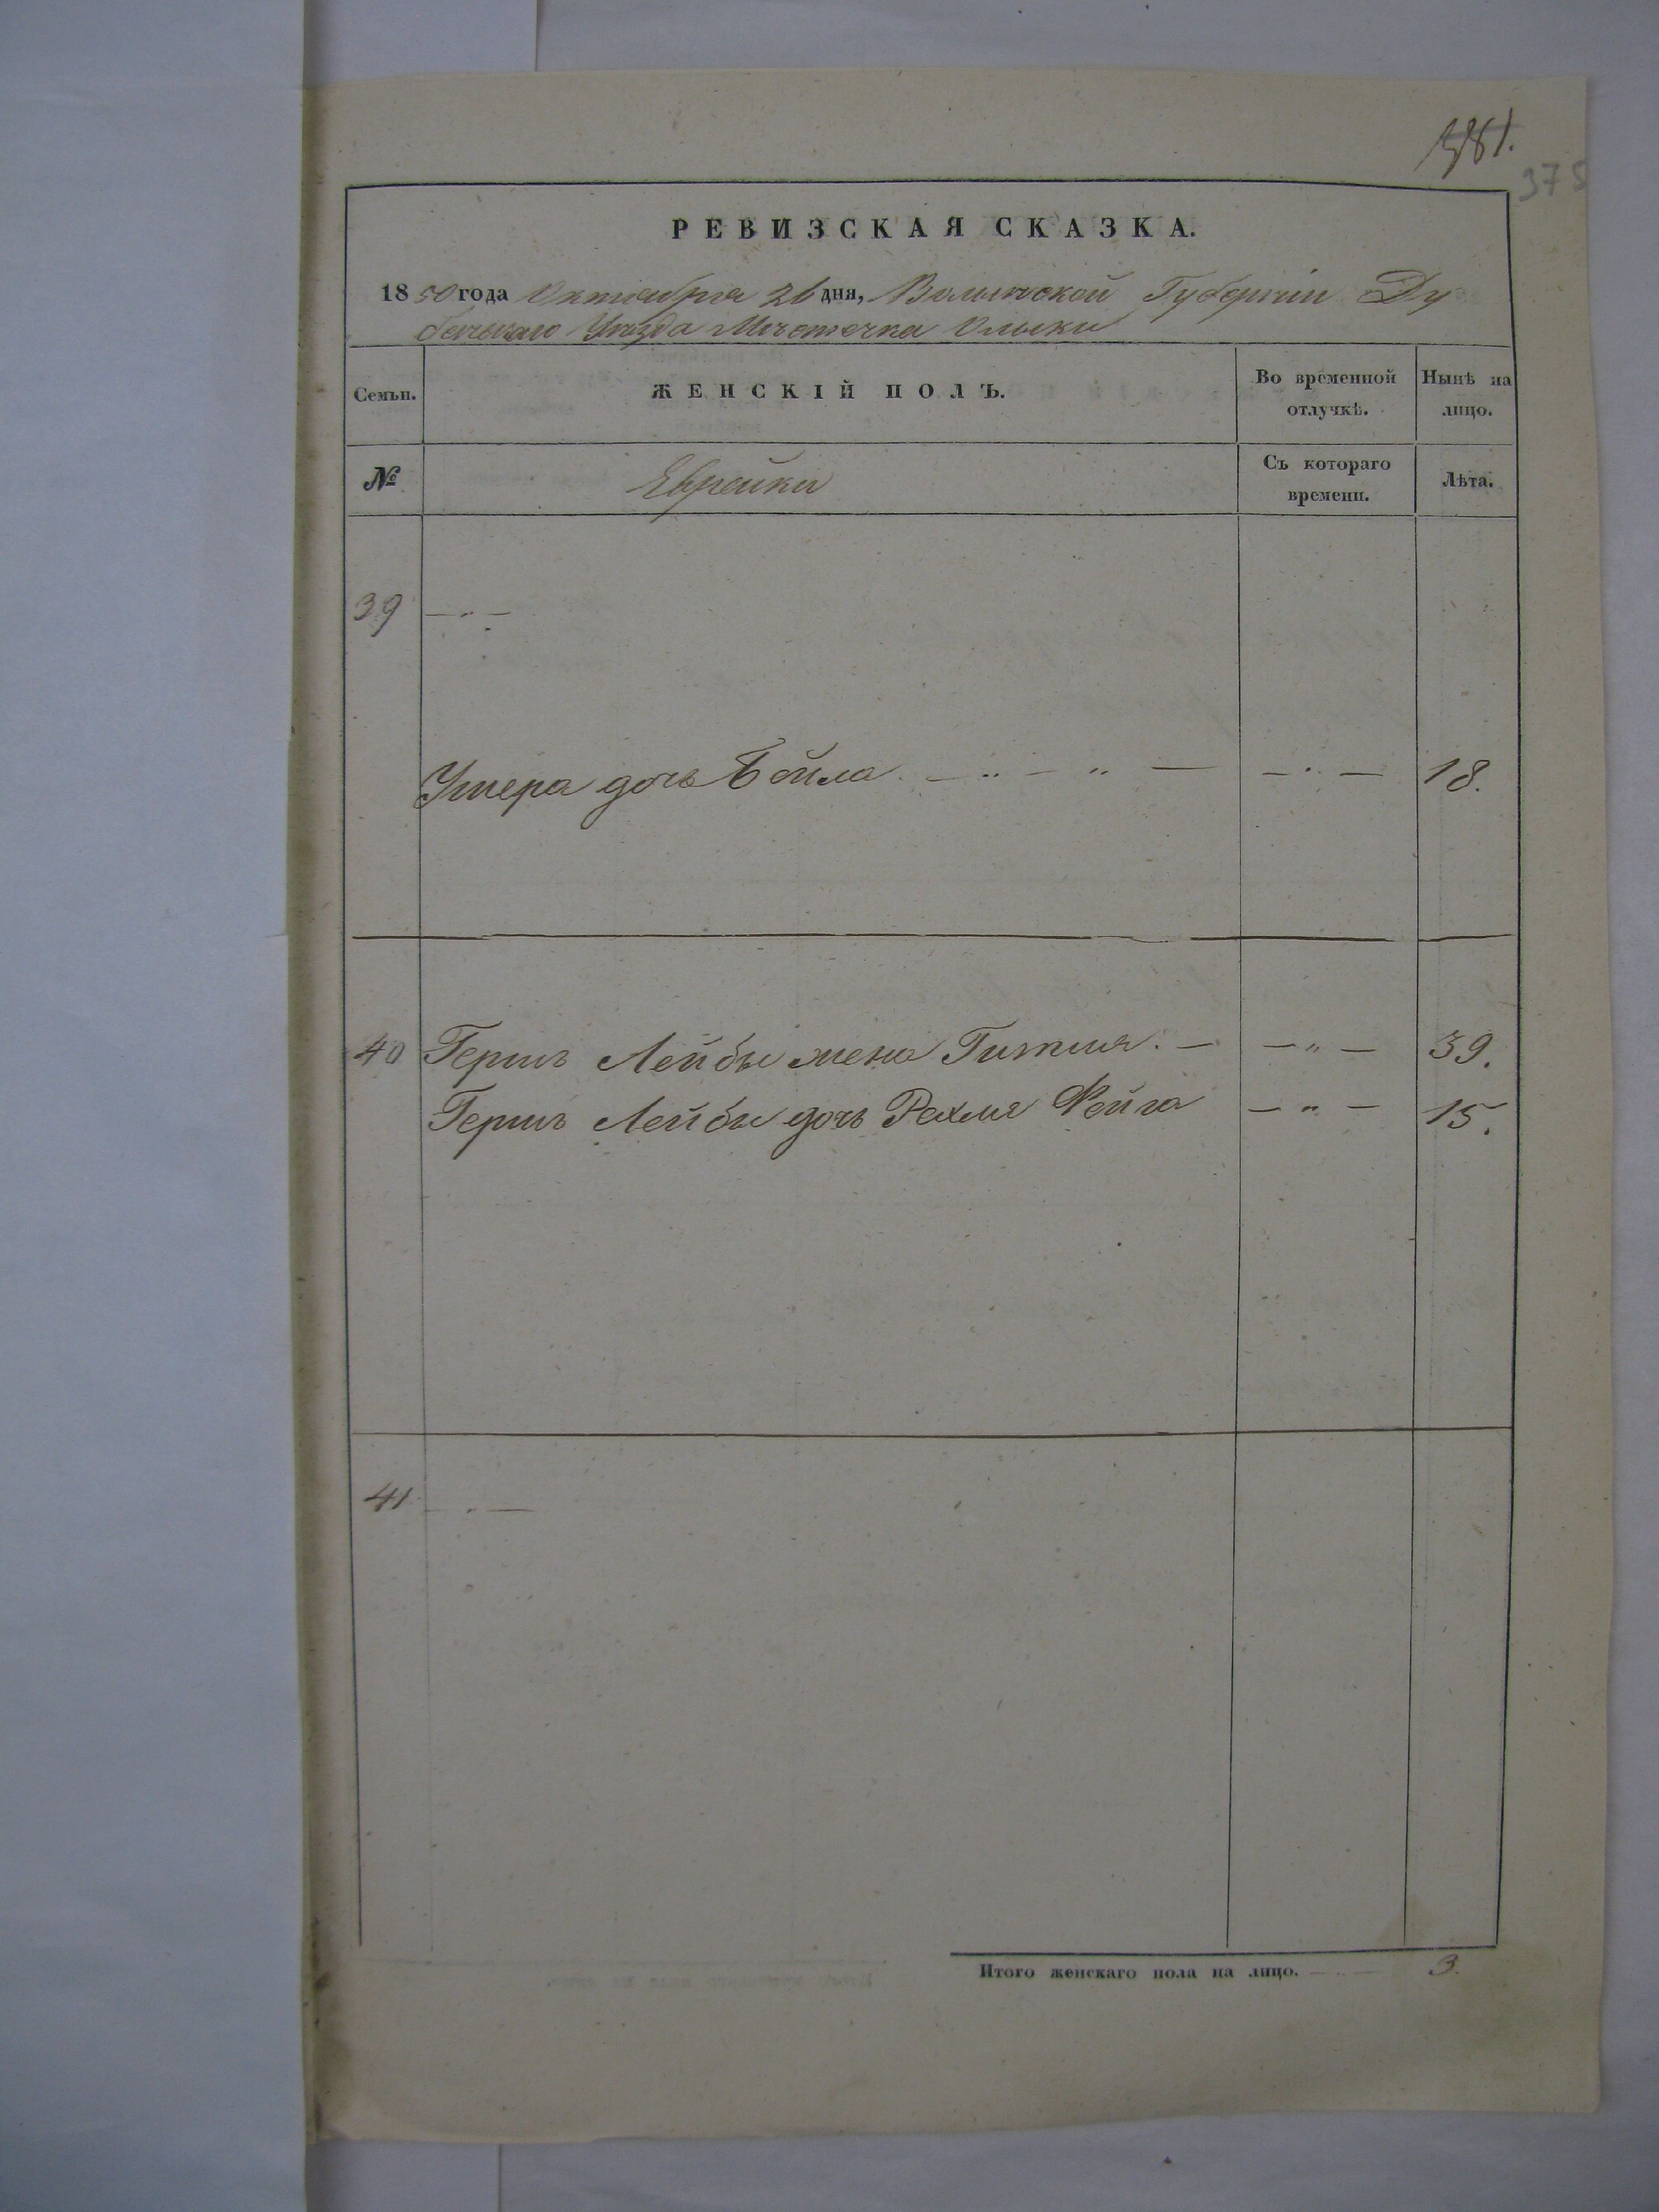 381.
375
РЕВИЗСКАЯ СКАЗКА.
1850 года Октября 26 дня, Волынской Губерніи Ду
бенскаго Уѣзда Мѣстечка Олыки
Семьи.
ЖЕНСКІЙ ПОЛЪ.
Во временной отлучкѣ.
Нынѣ на лицо.
№
Еврейки
Съ котораго времени.
Лѣта.
39 — " —
дочь Бейла. — " — " — — " — 18.
40 Герша Лейбы жена Гитля. — — " — 39.
Герша Лейбы дочь Рехля Фейга — " — 15.
41 — " —
Итого женскаго пола на лицо. — " — 3.